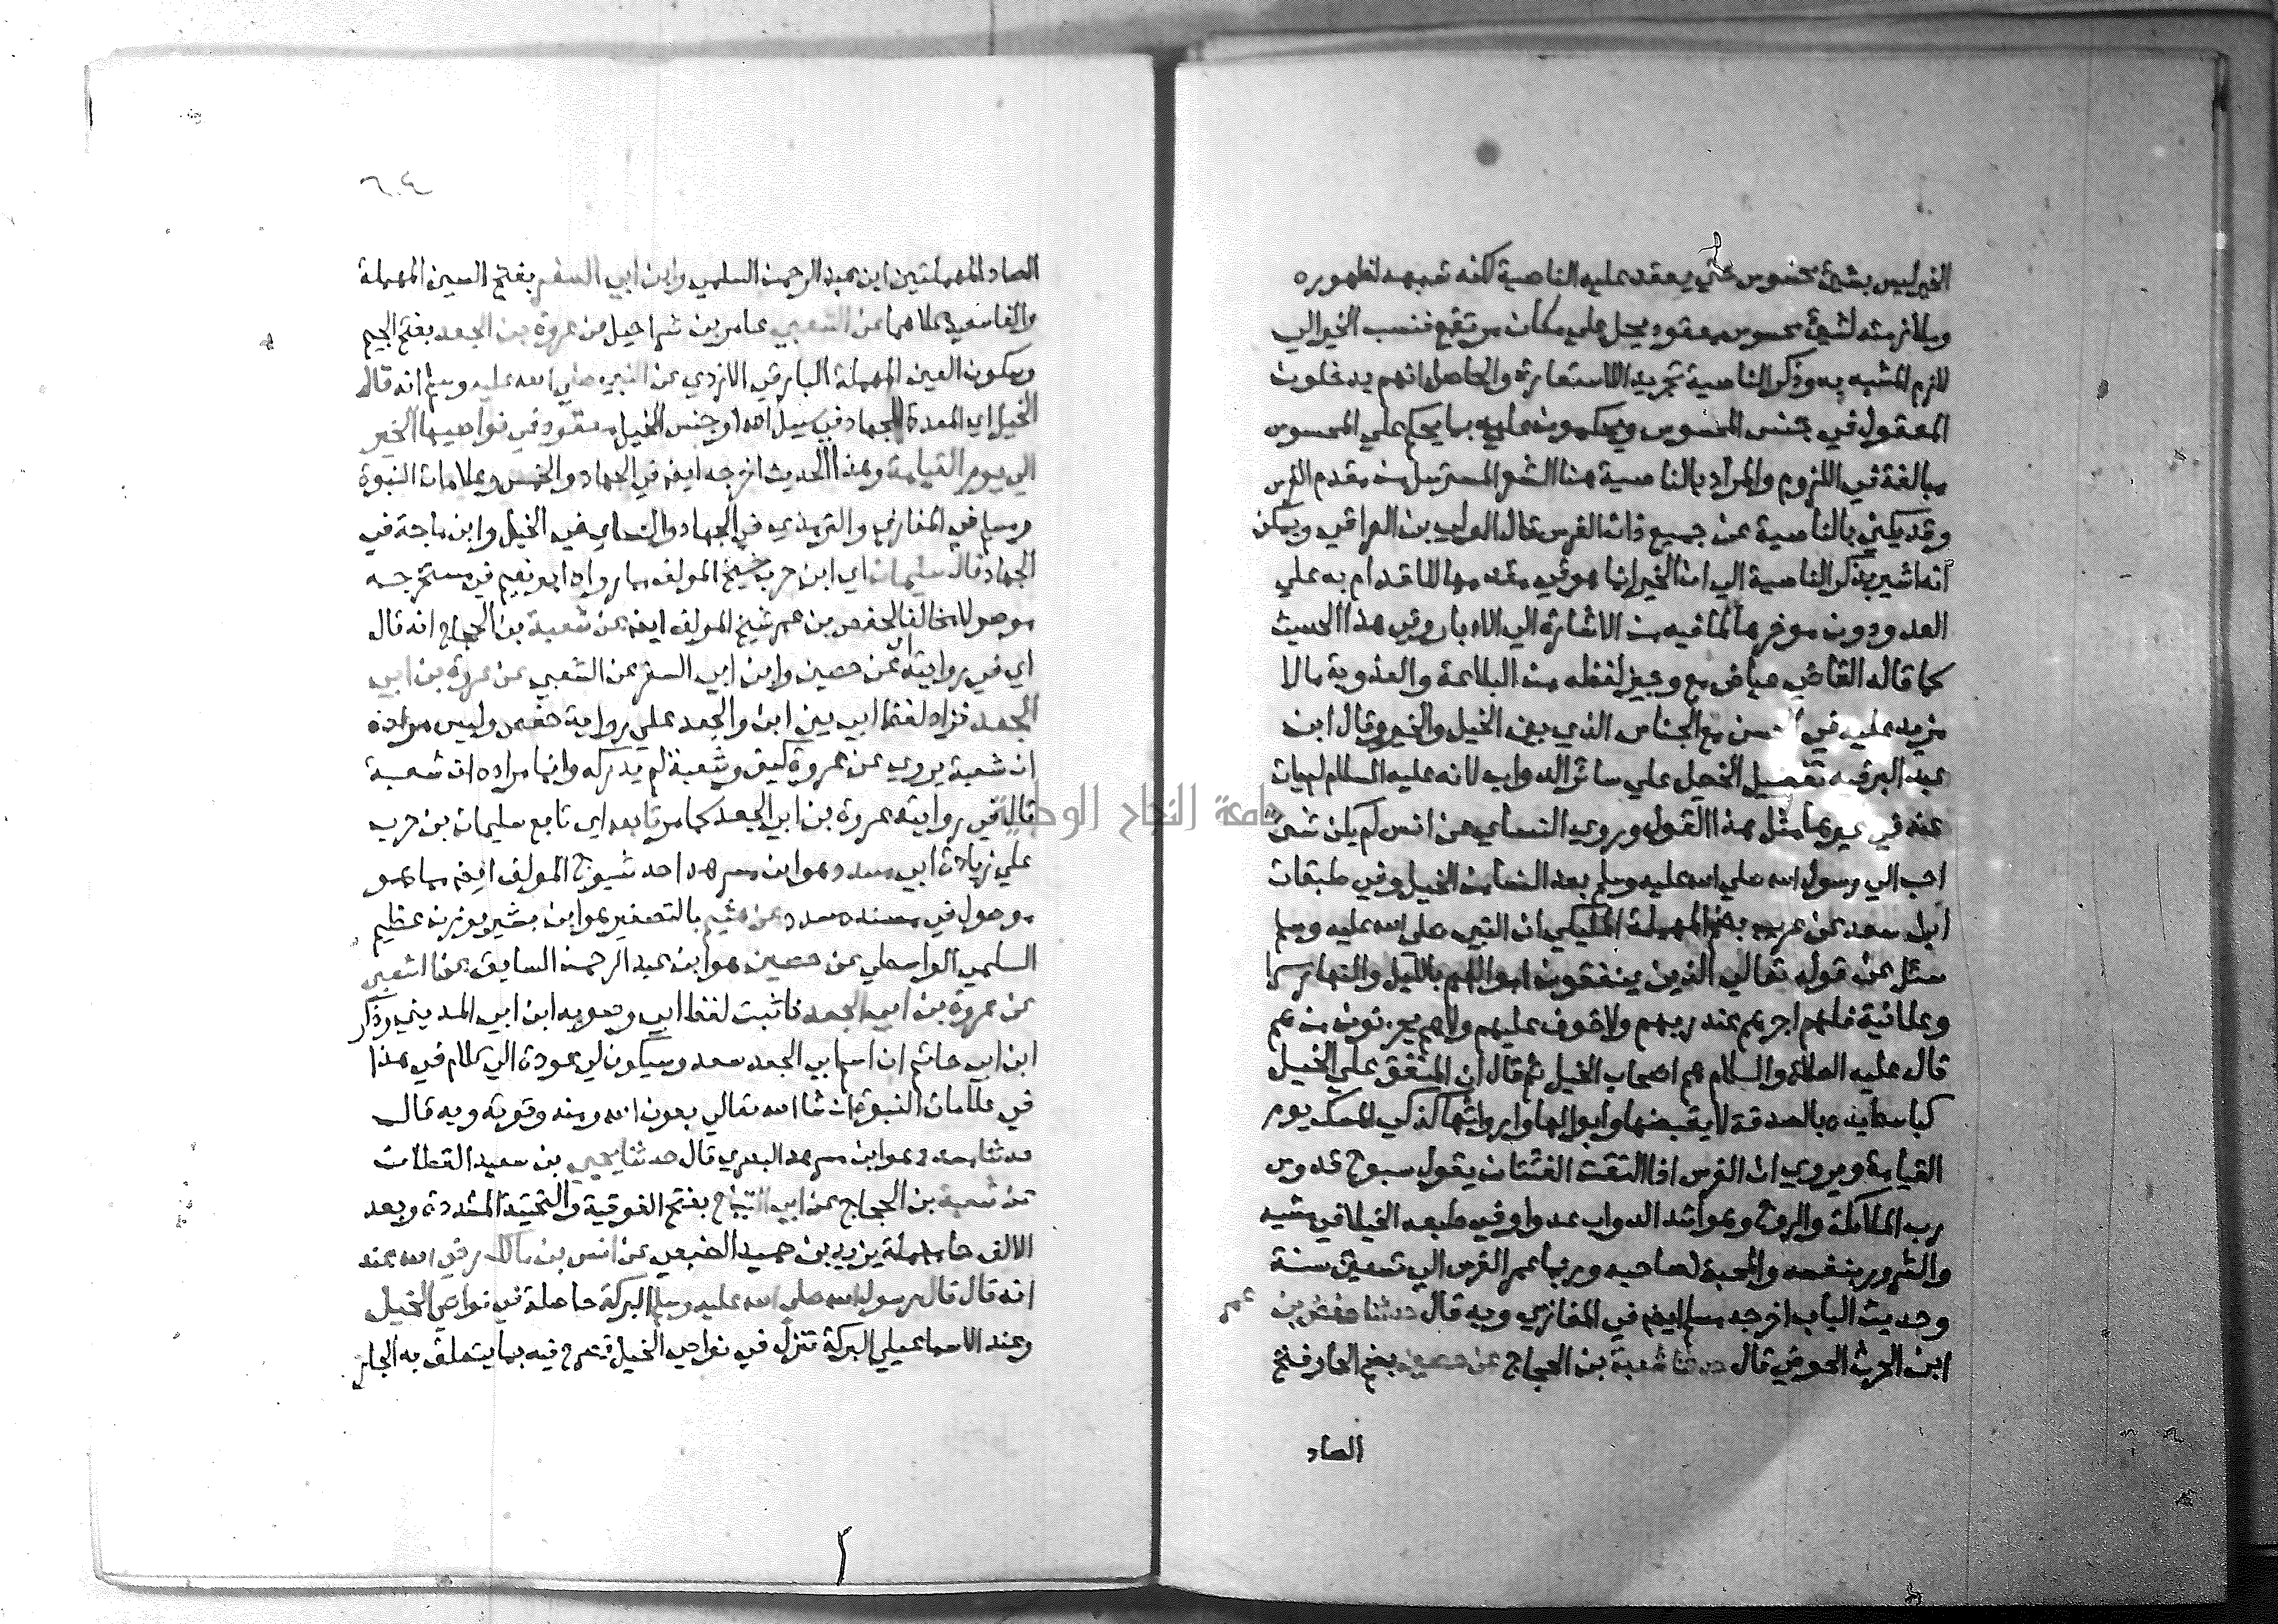 الخير ليس بشيئ محسوس حتي يعقد عليه الناصية لكنه شبهه لظهوره
وملازمته لشيئ محسوس معقود بحل علي مكان مرتفع فنسب الخير الي
لازم المشبه به وذكر الناصية تجريد اللاستعارة والحاصل انهم يدخلون
المعقول في جنس المحسوس ويحكمون عليه بما يحكم علي المحسوس
مبالغة في اللزوم والمراد بالناصية هنا الشعر المسترسل من مقدم الفرس
وقد يكني بالناصية عن جميع ذات الفرس قال الولي بن العراقي ويمكن
انه اشير بذكر الناصية الي ان الخير انما هو في مقدمها للاقدام به علي
العدو دون موخرها لما فيه من الاشارة الي الادبار وفي هذا الحديث
كما قاله القاضي عياض مع وجيز لفظه من البلاغة والعذوبة ما لا
مزيد عليه في الحسن مع الجناس الذي بين الخيل والخير وقال ابن
عبد البر فيه تفضيل الخيل علي سائر الدواب لانه عليه السلام لم يات
عنه في غيرها مثل هذا القول وروي النساي عن انس لم يكن شئ
احب الي رسول الله صلي الله عليه وسلم بعد النسا من الخيل وفي طبقات
ابن سعد عن عريب بضم المهملة المليكي ان النبي صلى الله عليه وسلم
سئل عن قوله تعالي الذين ينفقون اموالهم بالليل والنهار سرا
وعلانية فلهم اجرهم عند ربهم ولا خوف عليهم ولا هم يحزنون من هم
قال عليه الصلاة والسلام هم اصحاب الخيل ثم قال ان المنفق علي الخيل
كباسط يده بالصدقة لا يقبضها وابوالها وارواثها كذكي المسك يوم
القيامة ويروي ان الفرس اذا التقت الفئتان يقول سبوح قدوس
رب الملائكة والروح وهو اشد الدواب عدوا وفي طبعه الخيلا في مشيه
والسرور بنفسه والمحبة لصاحبه وربما عمر الفرس الي تسعين سنة
وحديث الباب اخرجه مسلم ايضا في المغازي وبه قال حدثنا حفص بن عمر
ابن الحرث الحوضي قال حدثنا شعبة بن الحجاج عن حصين بضم الحا وفتح
الصاد
٢٠٤
الصاد المهملتين ابن عبد الرحمن السلمي وابن ابي السفر بفتح السين المهملة
والفا سعيد كلاهما عن الشعبي عامر بن شراحيل عن عروة بن الجعد بفتح الجيم
وسكون العين المهملة البارقي الازدي عن النبي صلي الله عليه وسلم انه قال
الخيل اي المعدة للجهاد في سبيل الله او جنس الخيل معقود في نواصيها الخير
الي يوم القيامة وهذا الحديث اخرجه ايضا في الجهاد والخمس وعلامات النبوة
ومسلم في المغازي والترمذي في الجهاد والنساي في الخيل وابن ماجة في
الجهاد قال سليمان اي ابن حرب شيخ المولف مما رواه ابو نعيم في مستخرجه
موصولا مخالفا لحفص بن عمر شيخ المولف ايضا عن شعبة بن الحجاج انه قال
اي في روايته عن حصين وابن ابي السفر عن الشعبي عن عروة بن ابي
الجعد فزاد لفظ ابي بين ابن والجعد علي رواية حفص وليس مراده
ان شعبة يروي عن عروة كيف وشعبة لم يدركه وانما مراده ان شعبة
قال في روايته عروة بن ابي الجعد كما مر تابعه اي تابع سليمان بن حرب
علي زيادة ابي مسدد وهو ابن مسرهد احد شيوخ المولف ايضا مما هو
موصول في مسنده مسدد عن هشيم بالتصغير هو ابن بشير بوزن عظيم
السلمي الواسطي عن حصين هو ابن عبد الرحمن السابق عن الشعبي
عن عروة بن ابي الجعد فاثبت لفظ ابي وصوبه ابن ابي المديني وذكر
ابن ابي حاتم ان اسم ابي الجعد سعد وسيكون لي عودة الي الكلام في هذا
في علامات النبوة ان شا الله تعالي بعون الله ومنه وقوته وبه قال
حدثنا مسدد وهو ابن مسرهد البصري قال حدثنا يحيي بن سعيد القطان
عن شعبة بن الحجاج عن ابي التياح بفتح الفوقية والتحتية المشددة وبعد
الالف حا مهملة يزيد بن حميد الضبعي عن انس بن مالك رضي الله عنه
انه قال قال رسول الله صلي الله عليه وسلم البركة حاصلة في نواصي الخيل
وعند الاسماعيلي البركة تنزل في نواصي الخيل فصرح فيه بما يتعلق به الجار
جامعة النجاح الوطنية